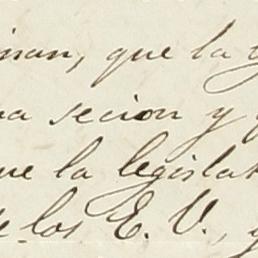 inan, que la
na secion y
ue la legislat
de los E. V., y